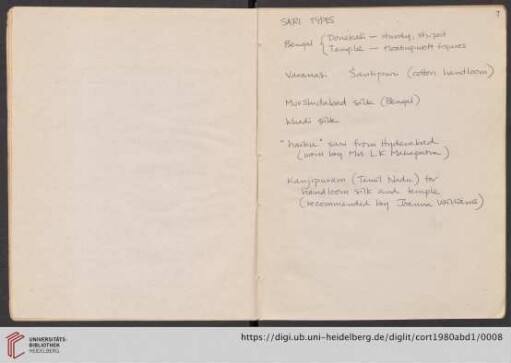 7
SARI TYPES
Bengal { Donekali — sturdy, striped
Temple — floating motif figures
Varanasi Śantipuri (cotton handloom)
Murshidabad silk (Bengal)
Khadi silk
" sari from Hyderabad
(worn by Mrs L K Mahapatra)
Kanjipuram (Tamil Nadu) for
handloom silk and temple
(recommended by Joanna Williams)
UNIVERSITÄTS-
BIBLIOTHEK
HEIDELBERG
https://digi.ub.uni-heidelberg.de/diglit/cort1980abd1/0008